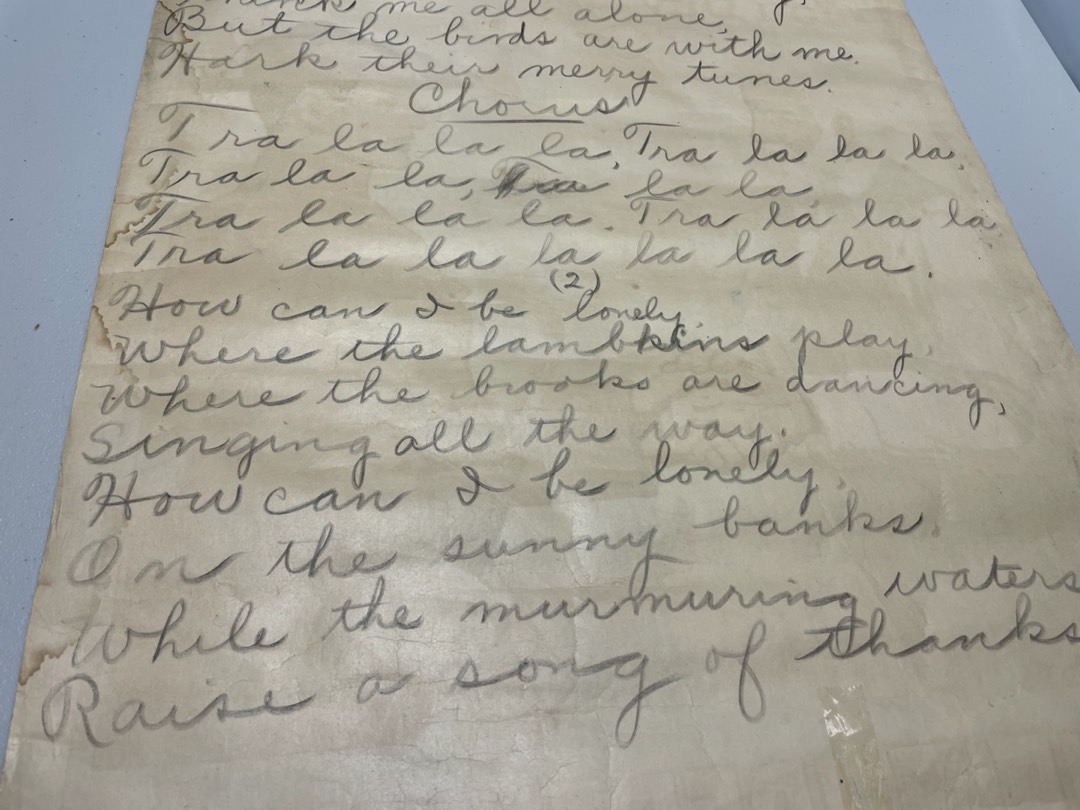 me all alone,
But the birds are with me.
Hark their merry tunes.
Chorus
Tra la la la, Tra la la la,
Tra la la, Tra la la
Tra la la la. Tra la la la
Tra la la la la la la.
(2)
How can I be lonely,
Where the lambkins play,
Where the brooks are dancing,
Singing all the way.
How can I be lonely,
On the sunny banks.
While the murmuring waters
Raise a song of thanks